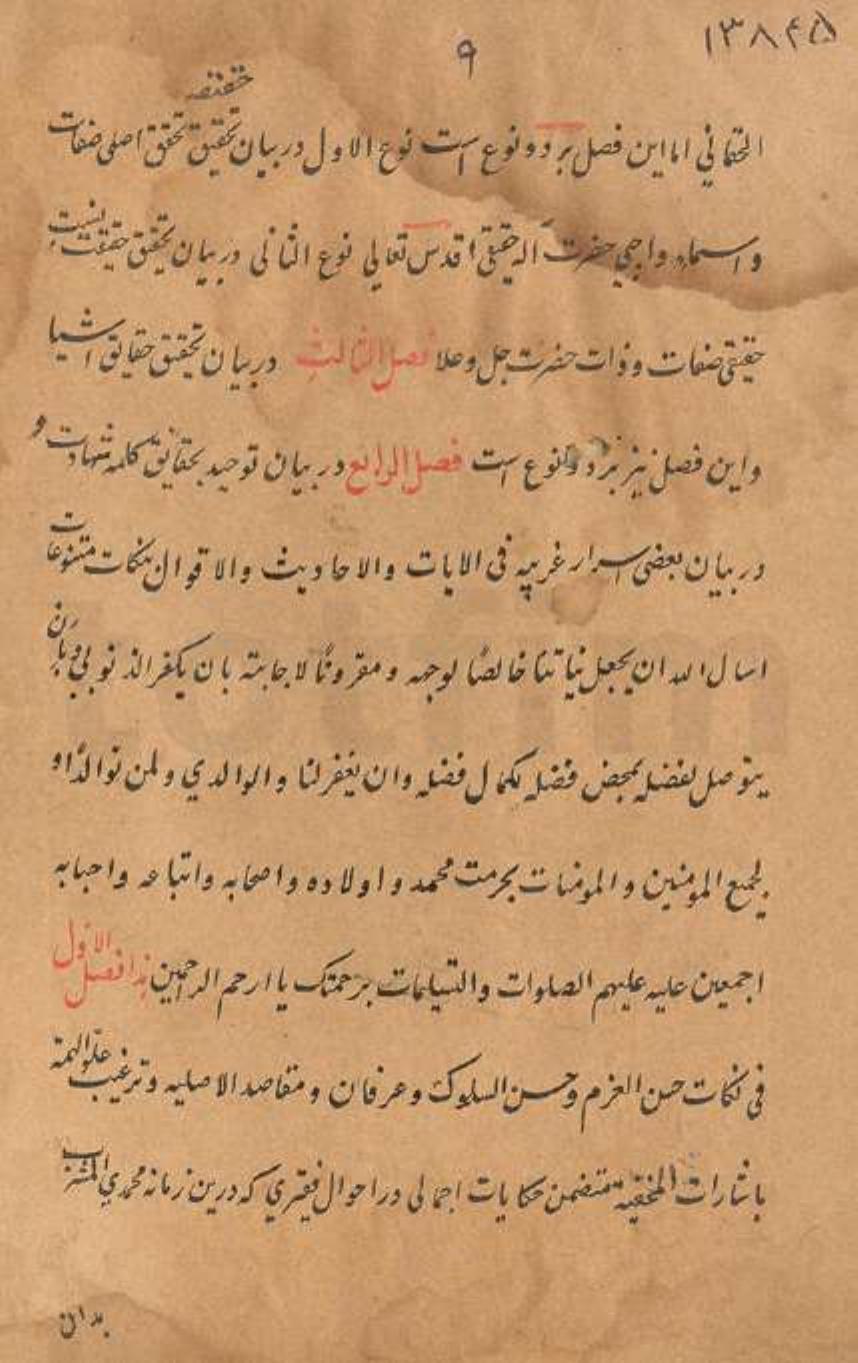 ۱۳۸۴۵
۹
الحقانی اما این فصل بر دو نوع است نوع الاول در بیان تحقیق تحقق اصلی صفات
و اسماء واجبی حضرت اله حقیقی اقدس تعالی نوع الثانی در بیان تحقیق حقیقت نسبت
حقیقی صفات و ذات حضرت جل و علا فصل الثالث در بیان تحقیق حقایق اشیا
و این فصل نیز بر دو نوع است فصل الرابع در بیان توحید بحقایق کلمه شهادت و
در بیان بعضی اسرار غریبه فی الایات والاحادیث والاقوال بنکات متنوعات
اسال الله ان یجعل نیاتنا خالصًا لوجهه و مقرونًا لاجابته بان یکفر الذنوبی و بان
یتوصل لفضله بمحض فضله بکمال فضله وان یغفر لنا والوالدی ولمن توالدا و
لجمیع المومنین والمومنات بحرمت محمد و اولاده واصحابه واتباعه واحبابه
اجمعین علیه علیهم الصلوات والتسلیمات برحمتک یا ارحم الراحمین هذا فصل الاول
فی نکات حسن العزم وحسن السلوک وعرفان ومقاصد الاصلیه وترغیب علو الهمة
باشارات المخفیة متضمن حکایات اجمالی در احوال فقیری که درین زمانه محمدی المشرب
بدان